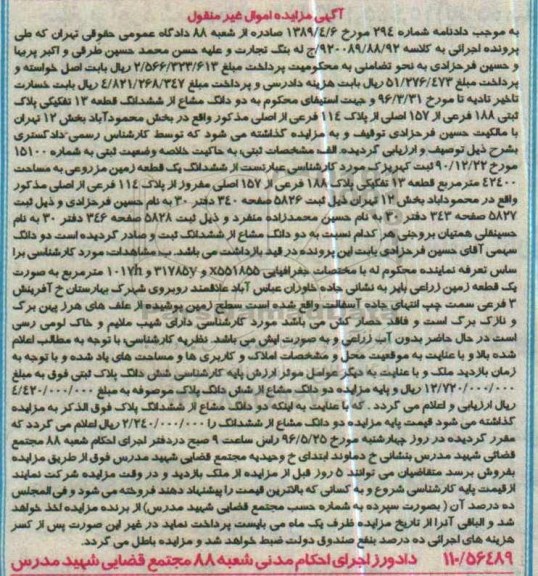 آگهی مزایده اموال غیر منقول
به موجب دادنامه شماره ۲۹۴ مورخ ۱۳۸۹/۴/۶ صادره از شعبه ۸۸ دادگاه عمومی حقوقی تهران که طی
پرونده اجرائی به کلاسه ۹۲۰۰۸۹/۸۸/۹۲/ج له بنگ تجارت و علیه حسن محمد حسین طرقی و اکبر پربها
و حسین فرحزادی به نحو تضامنی به محکومیت پرداخت مبلغ ۲/۵۶۶/۳۲۳/۶۱۳ ریال بابت اصل خواسته و
پرداخت مبلغ ۵۱/۲۷۶/۴۷۳ ریال بابت هزینه دادرسی و پرداخت مبلغ ۴/۸۲۱/۲۶۸/۳۴۷ ریال بابت خسارت
تاخیر تادیه تا مورخ ۹۶/۳/۳۱ و جهت استیفای محکوم به دو دانگ مشاع از ششدانگ قطعه ۱۳ تفکیکی پلاک
ثبتی ۱۸۸ فرعی از ۱۵۷ اصلی از پلاک ۱۱۴ فرعی از اصلی مذکور واقع در بخش محمودآباد بخش ۱۲ تهران
با مالکیت حسین فرحزادی توقیف و به مزایده گذاشته می شود که توسط کارشناس رسمی دادگستری
بشرح ذیل توصیف و ارزیابی گردیده. الف: مشخصات ثبتی: به حاکیت خلاصه وضعیت ثبتی به شماره ۱۵۱۰۰
مورخ ۹۰/۱۲/۲۲ ثبت کهریزک مورد کارشناسی عبارتست از ششدانگ یک قطعه زمین مزروعی به مساحت
۴۲۴۰۰ مترمربع قطعه ۱۳ تفکیکی پلاک ۱۸۸ فرعی از ۱۵۷ اصلی مفروز از پلاک ۱۱۴ فرعی از اصلی مذکور
واقع در محمودآباد بخش ۱۲ تهران ذیل ثبت ۵۸۲۶ صفحه ۳۴۰ دفتر ۳۰ به نام حسین فرحزادی و ذیل ثبت
۵۸۲۷ صفحه ۳۴۳ دفتر ۳۰ به نام حسین محمدزاده منفرد و ذیل ثبت ۵۸۲۸ صفحه ۳۴۶ دفتر ۳۰ به نام
حسینقلی همتیان بروجنی هر کدام نسبت به دو دانگ مشاع از ششدانگ ثبت و صادر گردیده است دو دانگ
سهمی آقای حسین فرحزادی بابت این پرونده در قید بازداشت می باشد. ب: مشاهدات: مورد کارشناسی برا
ساس تعرفه نماینده محکوم له با مختصات جغرافیایی x۵۵۱۸۵۵ و ۳۱۷۸۵y و ۱۰۱۷h مترمربع به صورت
یک قطعه زمین زراعی بایر به نشانی جاده خاوران عباس آباد علاقمند روبروی شهرک بهارستان خ آفرینش
۳ فرعی سمت چپ انتهای جاده آسفالت واقع شده است سطح زمین پوشیده از علف های هرز پهن برگ
و نازک برگ است و فاقد حصار کشی می باشد مورد کارشناسی دارای شیب ملایم و خاک لومی رسی
است در حال حاضر بدون آب زراعی و به صورت آیش می باشد. نظریه کارشناسی: با توجه به مطالب اعلام
شده بالا و با عنایت به موقعیت محل و مشخصات املاک و کاربری ها و مساحت های یاد شده و با توجه به
زمان بازدید ملک و با عنایت به دیگر عوامل موثر ارزش پایه کارشناسی شش دانگ پلاک ثبتی فوق به مبلغ
۱۲/۷۲۰/۰۰۰/۰۰۰ ریال و پایه مزایده دو دانگ مشاع از شش دانگ پلاک موصوفه به مبلغ ۴/۴۲۰/۰۰۰/۰۰۰
ریال ارزیابی و اعلام می گردد. که با عنایت به اینکه دو دانگ مشاع از ششدانگ پلاک فوق الذکر به مزایده
گذاشته می شود قیمت پایه مزایده دو دانگ مشاع از ششدانگ را ۲/۲۴۰/۰۰۰/۰۰۰ ریال اعلام می گردد که
مقرر گردیده در روز چهارشنبه مورخ ۹۶/۵/۲۵ راس ساعت ۹ صبح دردفتر اجرای احکام شعبه ۸۸ مجتمع
قضائی شهید مدرس بنشانی خ دماوند ابتدای خ وحیدیه مجتمع قضایی شهید مدرس فوق از طریق مزایده
بفروش برسد متقاضیان می توانند ۵ روز قبل از مزایده از ملک بازدید و در وقت مزایده شرکت نمایند
از قیمت پایه کارشناسی شروع و به کسانی که بالاترین قیمت را پیشنهاد دهند فروخته می شود و فی المجلس
ده درصد آن (بصورت سپرده به شماره حسب مجتمع قضایی شهید مدرس) از برنده مزایده اخذ خواهد
شد و الباقی آنرا از تاریخ مزایده ظرف یک ماه می بایست پرداخت نماید در غیر این صورت پس از کسر
هزینه های اجرائی ده درصد بنفع صندوق دولت ضبط خواهد شد و مزایده باطل می گردد.
۱۱۰/۵۶۴۸۹ دادورز اجرای احکام مدنی شعبه ۸۸ مجتمع قضایی شهید مدرس